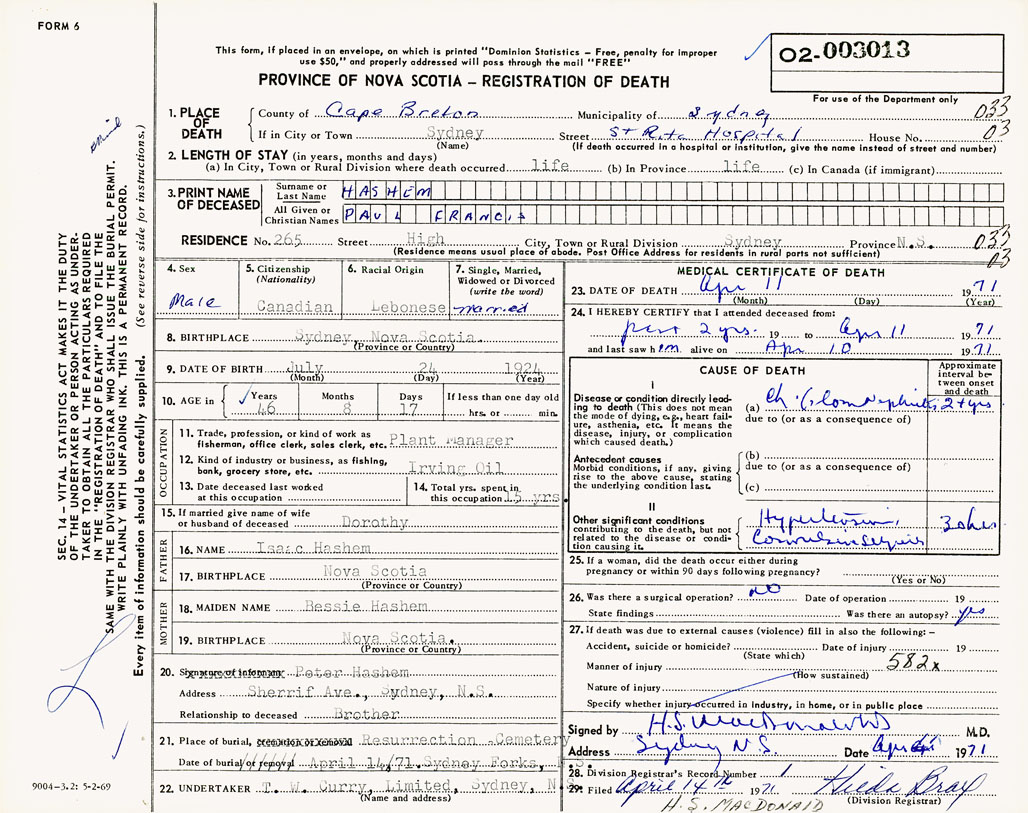 FORM 6
This form, if placed in an envelope, on which is printed "Dominion Statistics – Free, penalty for improper
use $50," and properly addressed will pass through the mail "FREE"
PROVINCE OF NOVA SCOTIA – REGISTRATION OF DEATH
02-003013
For use of the Department only
1. PLACE OF DEATH
County of Cape Breton Municipality of Sydney 033
If in City or Town Sydney Street St Rita Hospital House No. 03
(Name) (If death occurred in a hospital or institution, give the name instead of street and number)
2. LENGTH OF STAY (in years, months and days)
(a) In City, Town or Rural Division where death occurred life (b) In Province life (c) In Canada (if immigrant)
3. PRINT NAME OF DECEASED
Surname or Last Name HASHEM
All Given or Christian Names PAUL FRANCIS
RESIDENCE No. 265 Street High City, Town or Rural Division Sydney Province N.S. 033
(Residence means usual place of abode. Post Office Address for residents in rural parts not sufficient) 03
4. Sex Male
5. Citizenship (Nationality) Canadian
6. Racial Origin Lebonese
7. Single, Married, Widowed or Divorced (write the word) married
8. BIRTHPLACE Sydney, Nova Scotia.
(Province or Country)
9. DATE OF BIRTH July 24 1924
(Month) (Day) (Year)
10. AGE in Years 46 Months 8 Days 17 If less than one day old hrs. or min.
OCCUPATION
11. Trade, profession, or kind of work as fisherman, office clerk, sales clerk, etc. Plant Manager
12. Kind of industry or business, as fishing, bank, grocery store, etc. Irving Oil
13. Date deceased last worked at this occupation
14. Total yrs. spent in this occupation 15 yrs.
15. If married give name of wife or husband of deceased Dorothy
FATHER
16. NAME Isaac Hashem
17. BIRTHPLACE Nova Scotia
(Province or Country)
MOTHER
18. MAIDEN NAME Bessie Hashem
19. BIRTHPLACE Nova Scotia.
(Province or Country)
20. Signature of informant Peter Hashem
Address Sherrif Ave., Sydney, N.S.
Relationship to deceased Brother
21. Place of burial, cremation or removal Resurrection Cemetery
Date of burial or removal April 14/71 Sydney Forks, N.S.
22. UNDERTAKER T. W. Curry, Limited, Sydney, N.S.
(Name and address)
MEDICAL CERTIFICATE OF DEATH
23. DATE OF DEATH Apr 11 1971
(Month) (Day) (Year)
24. I HEREBY CERTIFY that I attended deceased from:
past 2 yrs. 19 to Apr 11 1971
and last saw him alive on Apr 10 1971
CAUSE OF DEATH
Approximate interval between onset and death
I
Disease or condition directly leading to death (This does not mean the mode of dying, e.g., heart failure, asthenia, etc. It means the disease, injury, or complication which caused death.)
(a) Ch. Glom Nephritis 2+yrs
due to (or as a consequence of)
Antecedent causes
Morbid conditions, if any, giving rise to the above cause, stating the underlying condition last.
(b)
due to (or as a consequence of)
(c)
II
Other significant conditions contributing to the death, but not related to the disease or condition causing it.
Hypertension,
25. If a woman, did the death occur either during pregnancy or within 90 days following pregnancy?
(Yes or No)
26. Was there a surgical operation? no Date of operation 19
State findings Was there an autopsy? yes
27. If death was due to external causes (violence) fill in also the following: –
Accident, suicide or homicide? Date of injury 19
(State which)
Manner of injury 582x
(How sustained)
Nature of injury
Specify whether injury occurred in industry, in home, or in public place
Signed by H.S. MacDonald M.D.
Address Sydney N.S. Date Apr 1971
28. Division Registrar's Record Number 1
29. Filed April 14th 1971 Hilda Bray
H. S. MACDONALD (Division Registrar)
SEC. 14 – VITAL STATISTICS ACT MAKES IT THE DUTY
OF THE UNDERTAKER OR PERSON ACTING AS UNDER-
TAKER TO OBTAIN ALL THE PARTICULARS REQUIRED
IN THE "REGISTRATION OF DEATH" AND TO FILE THE
SAME WITH THE DIVISION REGISTRAR WHO SHALL ISSUE THE BURIAL PERMIT.
WRITE PLAINLY WITH UNFADING INK. THIS IS A PERMANENT RECORD.
Every item of information should be carefully supplied. (See reverse side for instructions.)
9004-3.2: 5-2-69